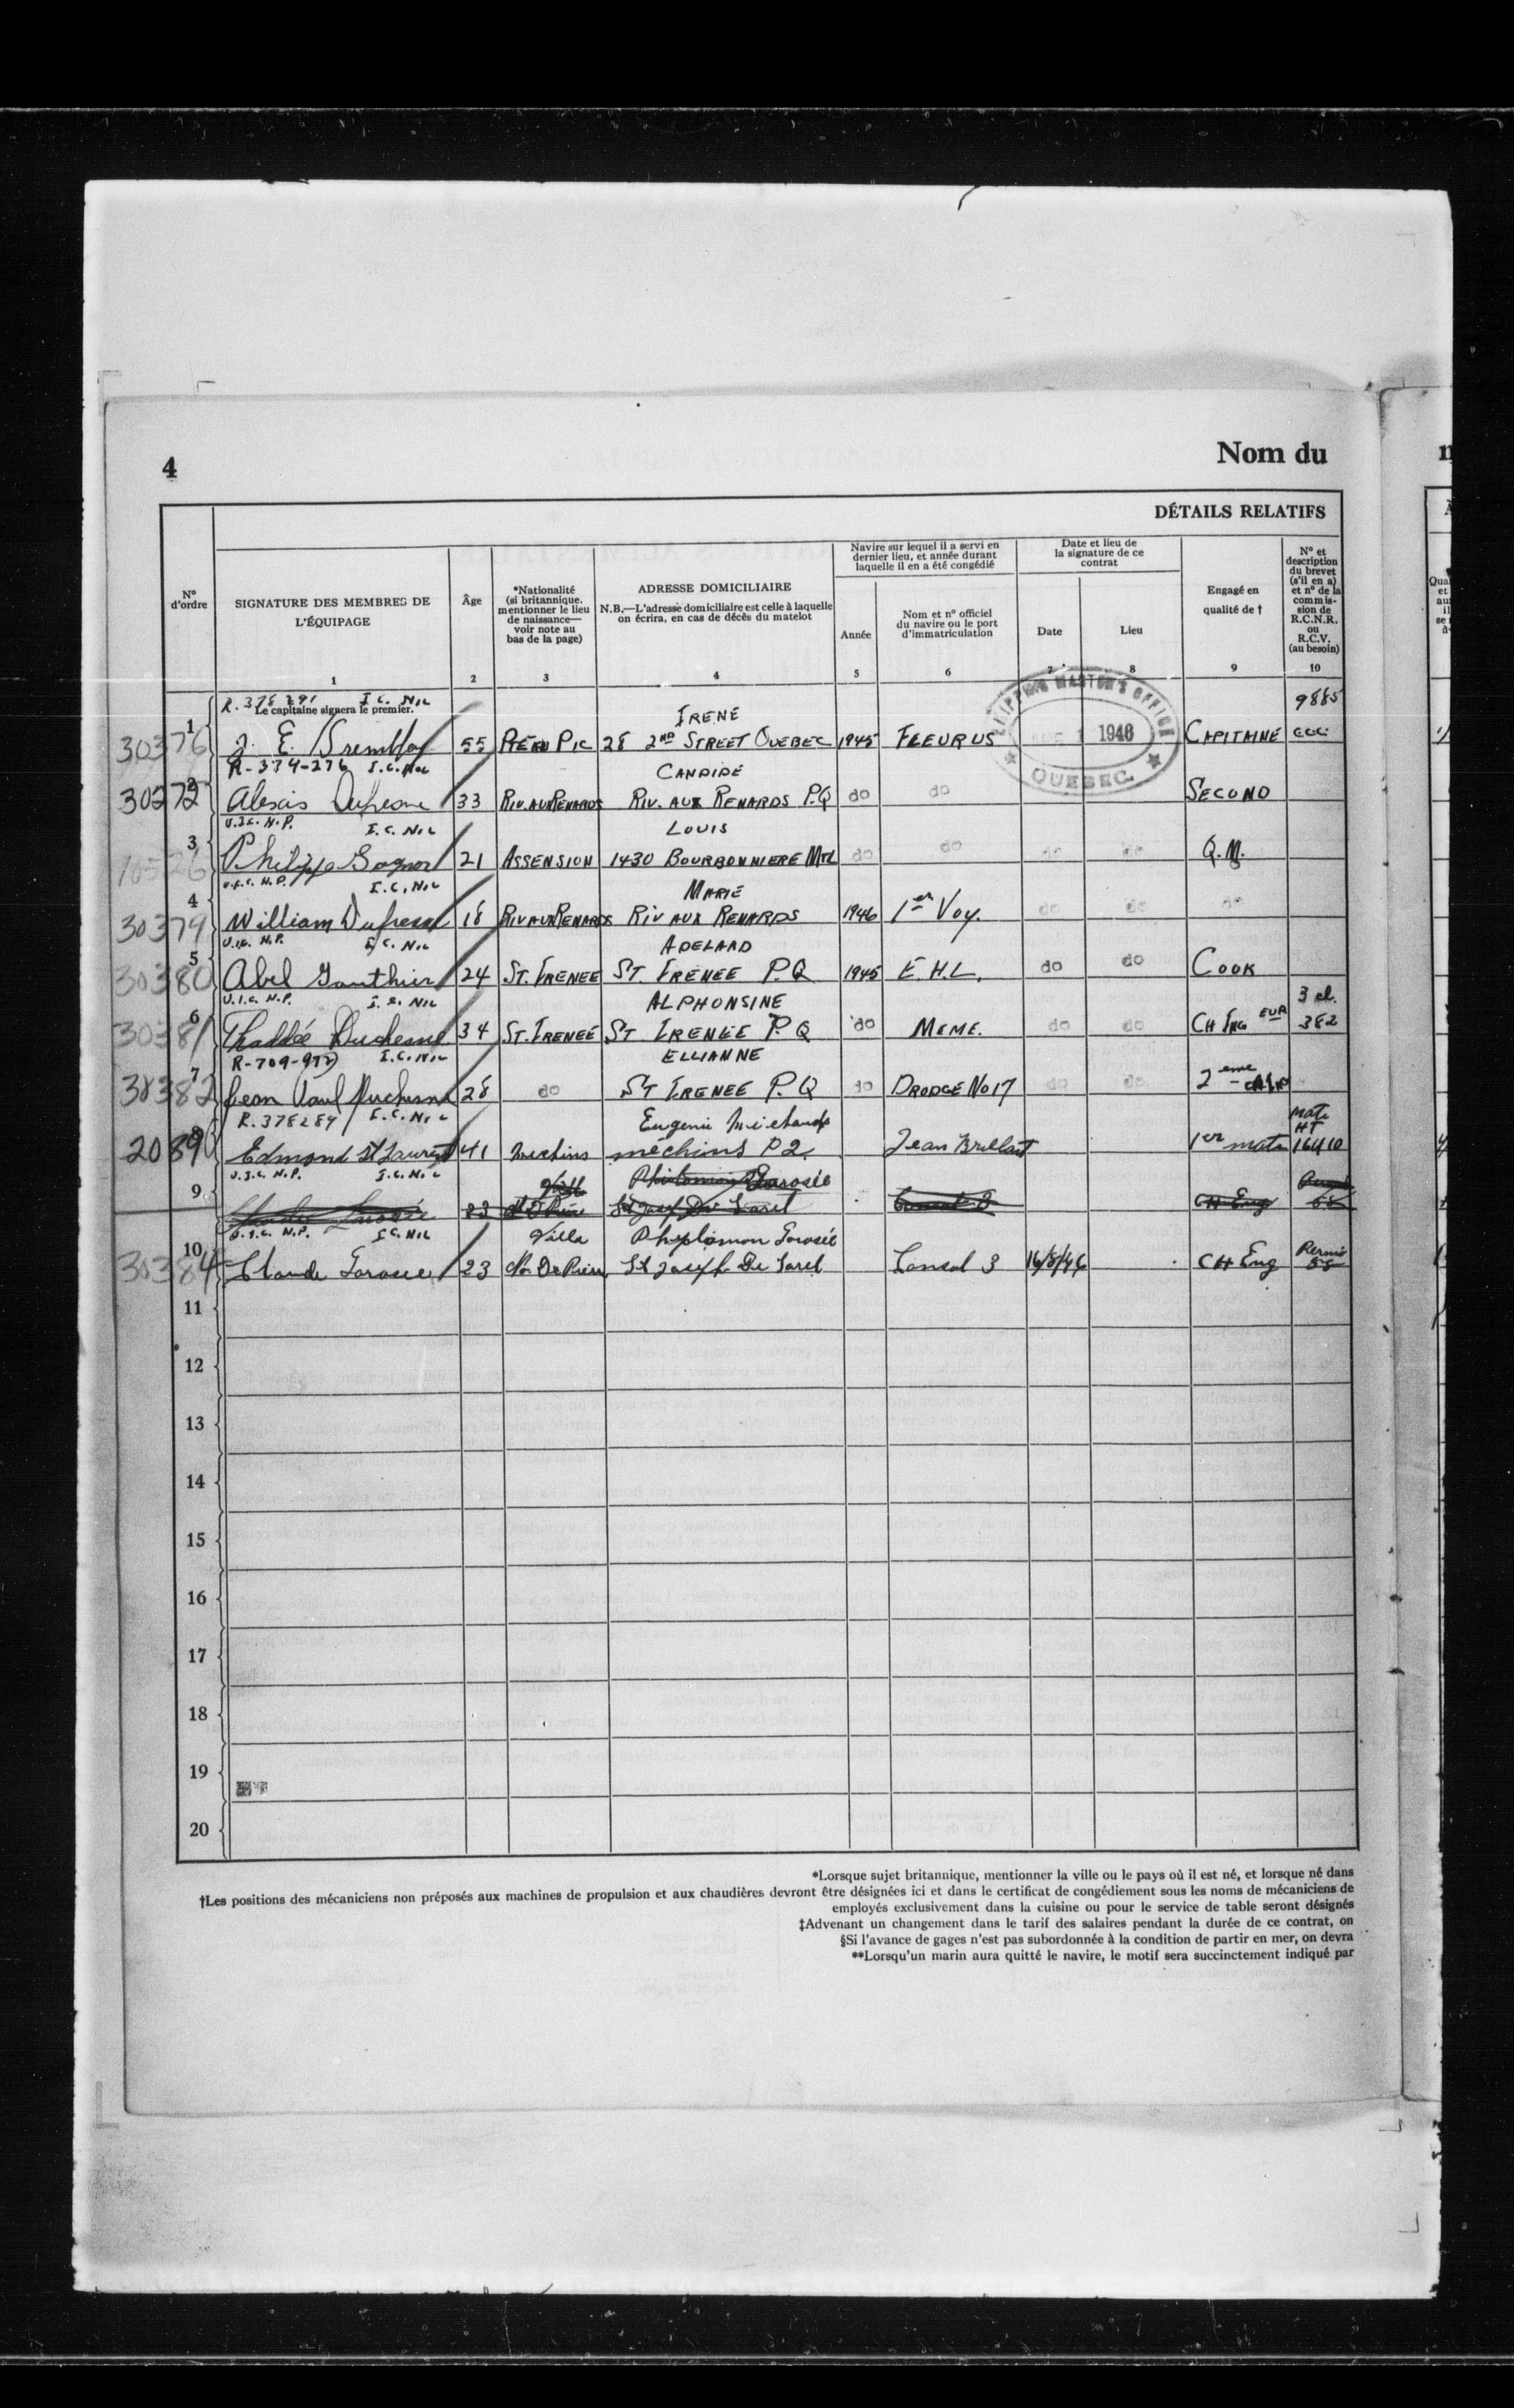 4
Nom du
DÉTAILS RELATIFS
N° d'ordre
SIGNATURE DES MEMBRES DE L'ÉQUIPAGE
1
Âge
2
*Nationalité
(si britannique.
mentionner le lieu
de naissance—
voir note au
bas de la page)
3
ADRESSE DOMICILIAIRE
N.B.—L'adresse domiciliaire est celle à laquelle
on écrira, en cas de décès du matelot
4
Navire sur lequel il a servi en
dernier lieu, et année durant
laquelle il en a été congédié
Année
5
Nom et n° officiel
du navire ou le port
d'immatriculation
6
Date et lieu de
la signature de ce
contrat
Date
7
Lieu
8
Engagé en
qualité de †
9
N° et
description
du brevet
(s'il en a)
et n° de la
commis-
sion de
R.C.N.R.
ou
R.C.V.
(au besoin)
10
R. 378 291 I.C. Nil
Le capitaine signera le premier.
IRENE
9885
30376 1 J. E. Tremblay 55 28 2ND STREET QUEBEC 1945 FLEURUS CAPITAINE
MASTER'S OFFICE
1946
QUEBEC
R-374-276 I.C. Nil
CANDIDE
2 Alexis Dufresne 33 RIV. AUX RENARDS RIV. AUX RENARDS P.Q do do SECOND
U.I.C. N.P. I.C. Nil
LOUIS
3 Philippe Gagnon 21 ASSENSION 1430 BOURBONNIERE MTL do do do do Q.M.
U.I.C. N.P. I.C. Nil
MARIE
30379 4 William Dufresne 18 RIV AUX RENARDS RIV AUX RENARDS 1946 1er Voy. do do do
U.I.C. N.P. I.C. Nil
ADELARD
30380 5 Abel Gauthier 24 ST. IRENEE ST. IRENEE P.Q 1945 E.H.L. do do COOK
U.I.C. N.P. I.C. Nil
ALPHONSINE
3 cl.
30381 6 Thaddée Duchesne 34 ST. IRENEE ST IRENEE P.Q do MEME. do do CH ING EUR 382
R-709-972 I.C. Nil
ELLIANNE
30382 7 Jean Paul Duchesne 28 do ST IRENEE P.Q do DRODGE No 17 do do 2 eme
R. 378289 I.C. Nil
Eugenie Michaud
Mate
HT
2089 8 Edmond St Laurent 41 Mechins mechins P.Q. Jean Brillant 1er mate 16410
U.I.C. N.P. I.C. Nil
9 23 CH Eng
U.I.C. N.P. I.C. Nil
Ville
Phylomon Larosée
30384 10 Claude Larosée 23 St Joseph De Sorel Consol 3 16/8/46 CH Eng Permis
11
12
13
14
15
16
17
18
19
20
*Lorsque sujet britannique, mentionner la ville ou le pays où il est né, et lorsque né dans
†Les positions des mécaniciens non préposés aux machines de propulsion et aux chaudières devront être désignées ici et dans le certificat de congédiement sous les noms de mécaniciens de
employés exclusivement dans la cuisine ou pour le service de table seront désignés
‡Advenant un changement dans le tarif des salaires pendant la durée de ce contrat, on
§Si l'avance de gages n'est pas subordonnée à la condition de partir en mer, on devra
**Lorsqu'un marin aura quitté le navire, le motif sera succinctement indiqué par